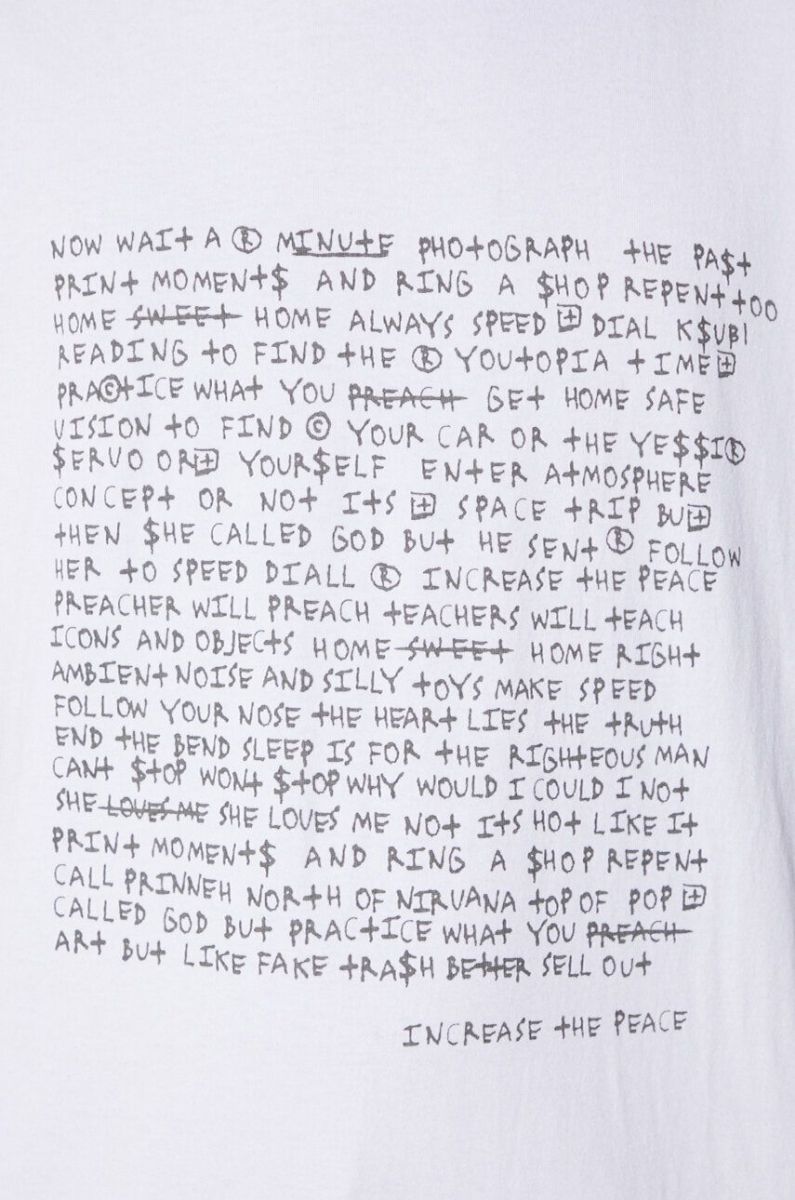 NOW WAIT A ® MINUTE PHOTOGRAPH THE PA$T
PRINT MOMENT$ AND RING A $HOP REPENT TOO
HOME SWEET HOME ALWAYS SPEED ⊞ DIAL K$UBI
READING TO FIND THE ® YOUTOPIA TIME⊞
PRA©TICE WHAT YOU PREACH GET HOME SAFE
VISION TO FIND © YOUR CAR OR THE YE$$I®
$ERVO OR⊞ YOUR$ELF ENTER ATMOSPHERE
CONCEPT OR NOT ITS ⊞ SPACE TRIP BU⊞
THEN $HE CALLED GOD BUT HE SENT ® FOLLOW
HER TO SPEED DIALL ® INCREASE THE PEACE
PREACHER WILL PREACH TEACHERS WILL TEACH
ICONS AND OBJECTS HOME SWEET HOME RIGHT
AMBIENT NOISE AND SILLY TOYS MAKE SPEED
FOLLOW YOUR NOSE THE HEART LIES THE TRUTH
END THE BEND SLEEP IS FOR THE RIGHTEOUS MAN
CANT $TOP WONT $TOP WHY WOULD I COULD I NOT
SHE LOVES ME SHE LOVES ME NOT ITS HOT LIKE IT
PRINT MOMENT$ AND RING A $HOP REPENT
CALL PRINNEH NORTH OF NIRVANA TOP OF POP ⊞
CALLED GOD BUT PRACTICE WHAT YOU PREACH
ART BUT LIKE FAKE TRA$H BETTER SELL OUT
INCREASE THE PEACE